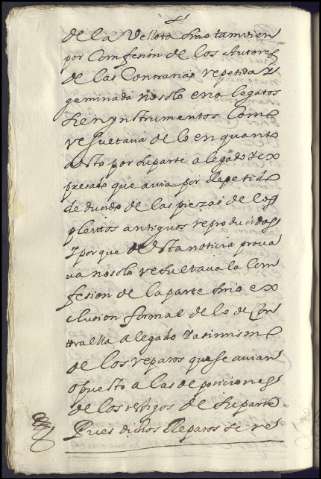 de la Vellota sino tamvien
por Comfesion de los Autores
de las Contrarias repetida y
geminada no solo en
en Ynstrumentos Como
resultava de lo en quanto
a esto por su parte alegado y ex
presado que avia por
de las piezas de los
pleitos antiguos reproducidos
Y porque de esta noticia prova
va no solo resultava la Com
fesion de la parte sino ex
clusion formal de lo de Con
traella alegado Y asimismo
de los reparos que se avian
opuesto a las deposiciones
de los testigos de su parte
Pues dichos Reparos se res